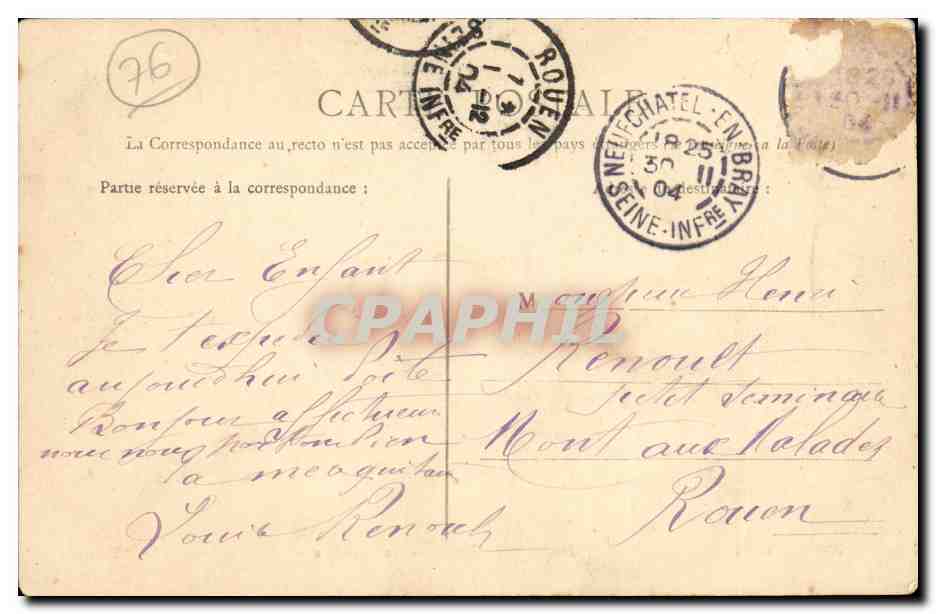 76
ROUEN
SEINE INFRE
1 12
04
NEUFCHATEL-EN-BRAY
18 25
30 11
04
SEINE-INFRE
CARTE POSTALE
La Correspondance au recto n'est pas acceptée par tous les pays étrangers (se renseigner à la Poste)
Partie réservée à la correspondance :
Adresse du destinataire :
Cher Enfant
Je t'expedie
aujourdhui boite
Bonjour affectueux
nous nous portons bien
Louis Renoult
Monsieur Henri
Renoult
petit seminaire
Mont aux Malades
Rouen
CPAPHIL